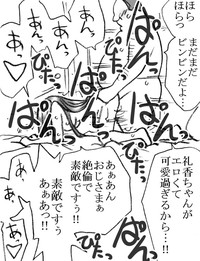 ほら
ほらっ
まだまだ
ビンビンだよ…!
あっ
あんっ
あんっ
あ〜っ♡
ぱんっ
ぴたっ
ぱんっ
ぴたっ
ぱんっ
礼香ちゃんが
エロくて
可愛過ぎるから…!!
ぱんっ
ぴたっ
ぱんっ
ああぁん
おじさまぁ
絶倫で
素敵ですぅ
素敵ですぅ
あぁあっ!!